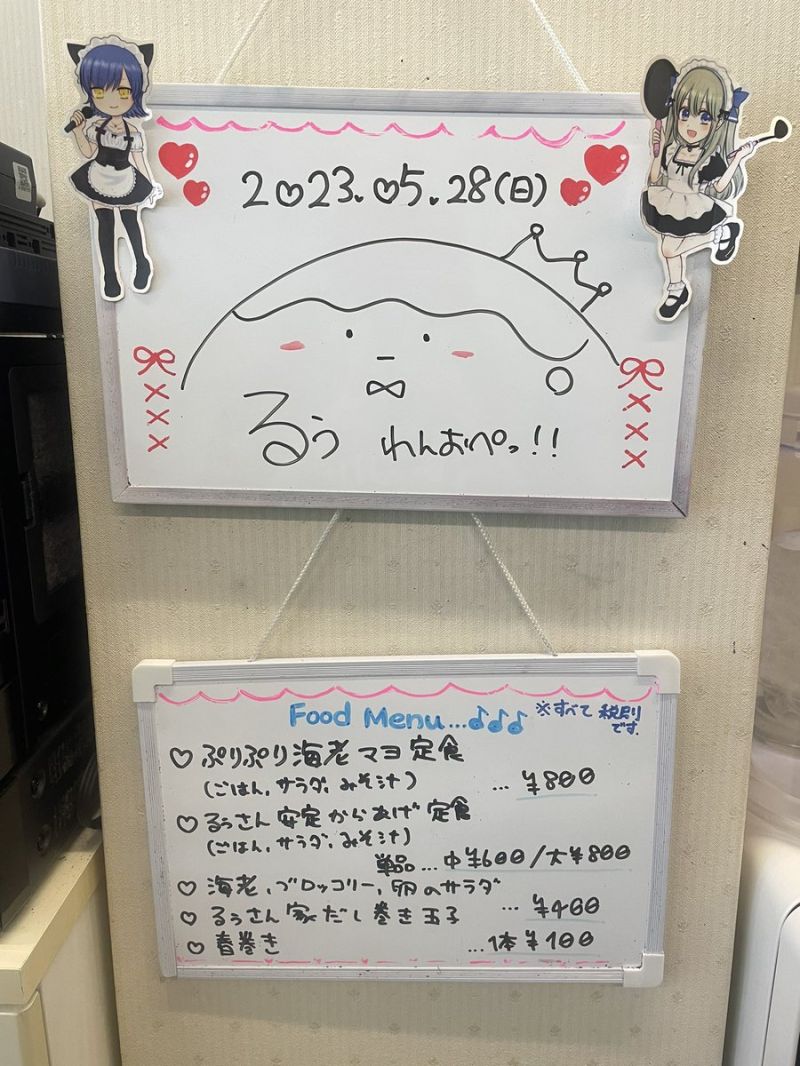 2023.05.28(日)
るぅ わんおぺっ!!
Food Menu...♪♪♪
※すべて税別
です.
♡ ぷりぷり海老マヨ定食
(ごはん,サラダ,みそ汁) ... ¥800
♡ るぅさん安定からあげ定食
(ごはん,サラダ,みそ汁)
単品...中¥600/大¥800
♡ 海老,ブロッコリー,卵のサラダ
♡ るぅさん家だし巻き玉子 ... ¥400
♡ 春巻き ...1本¥100